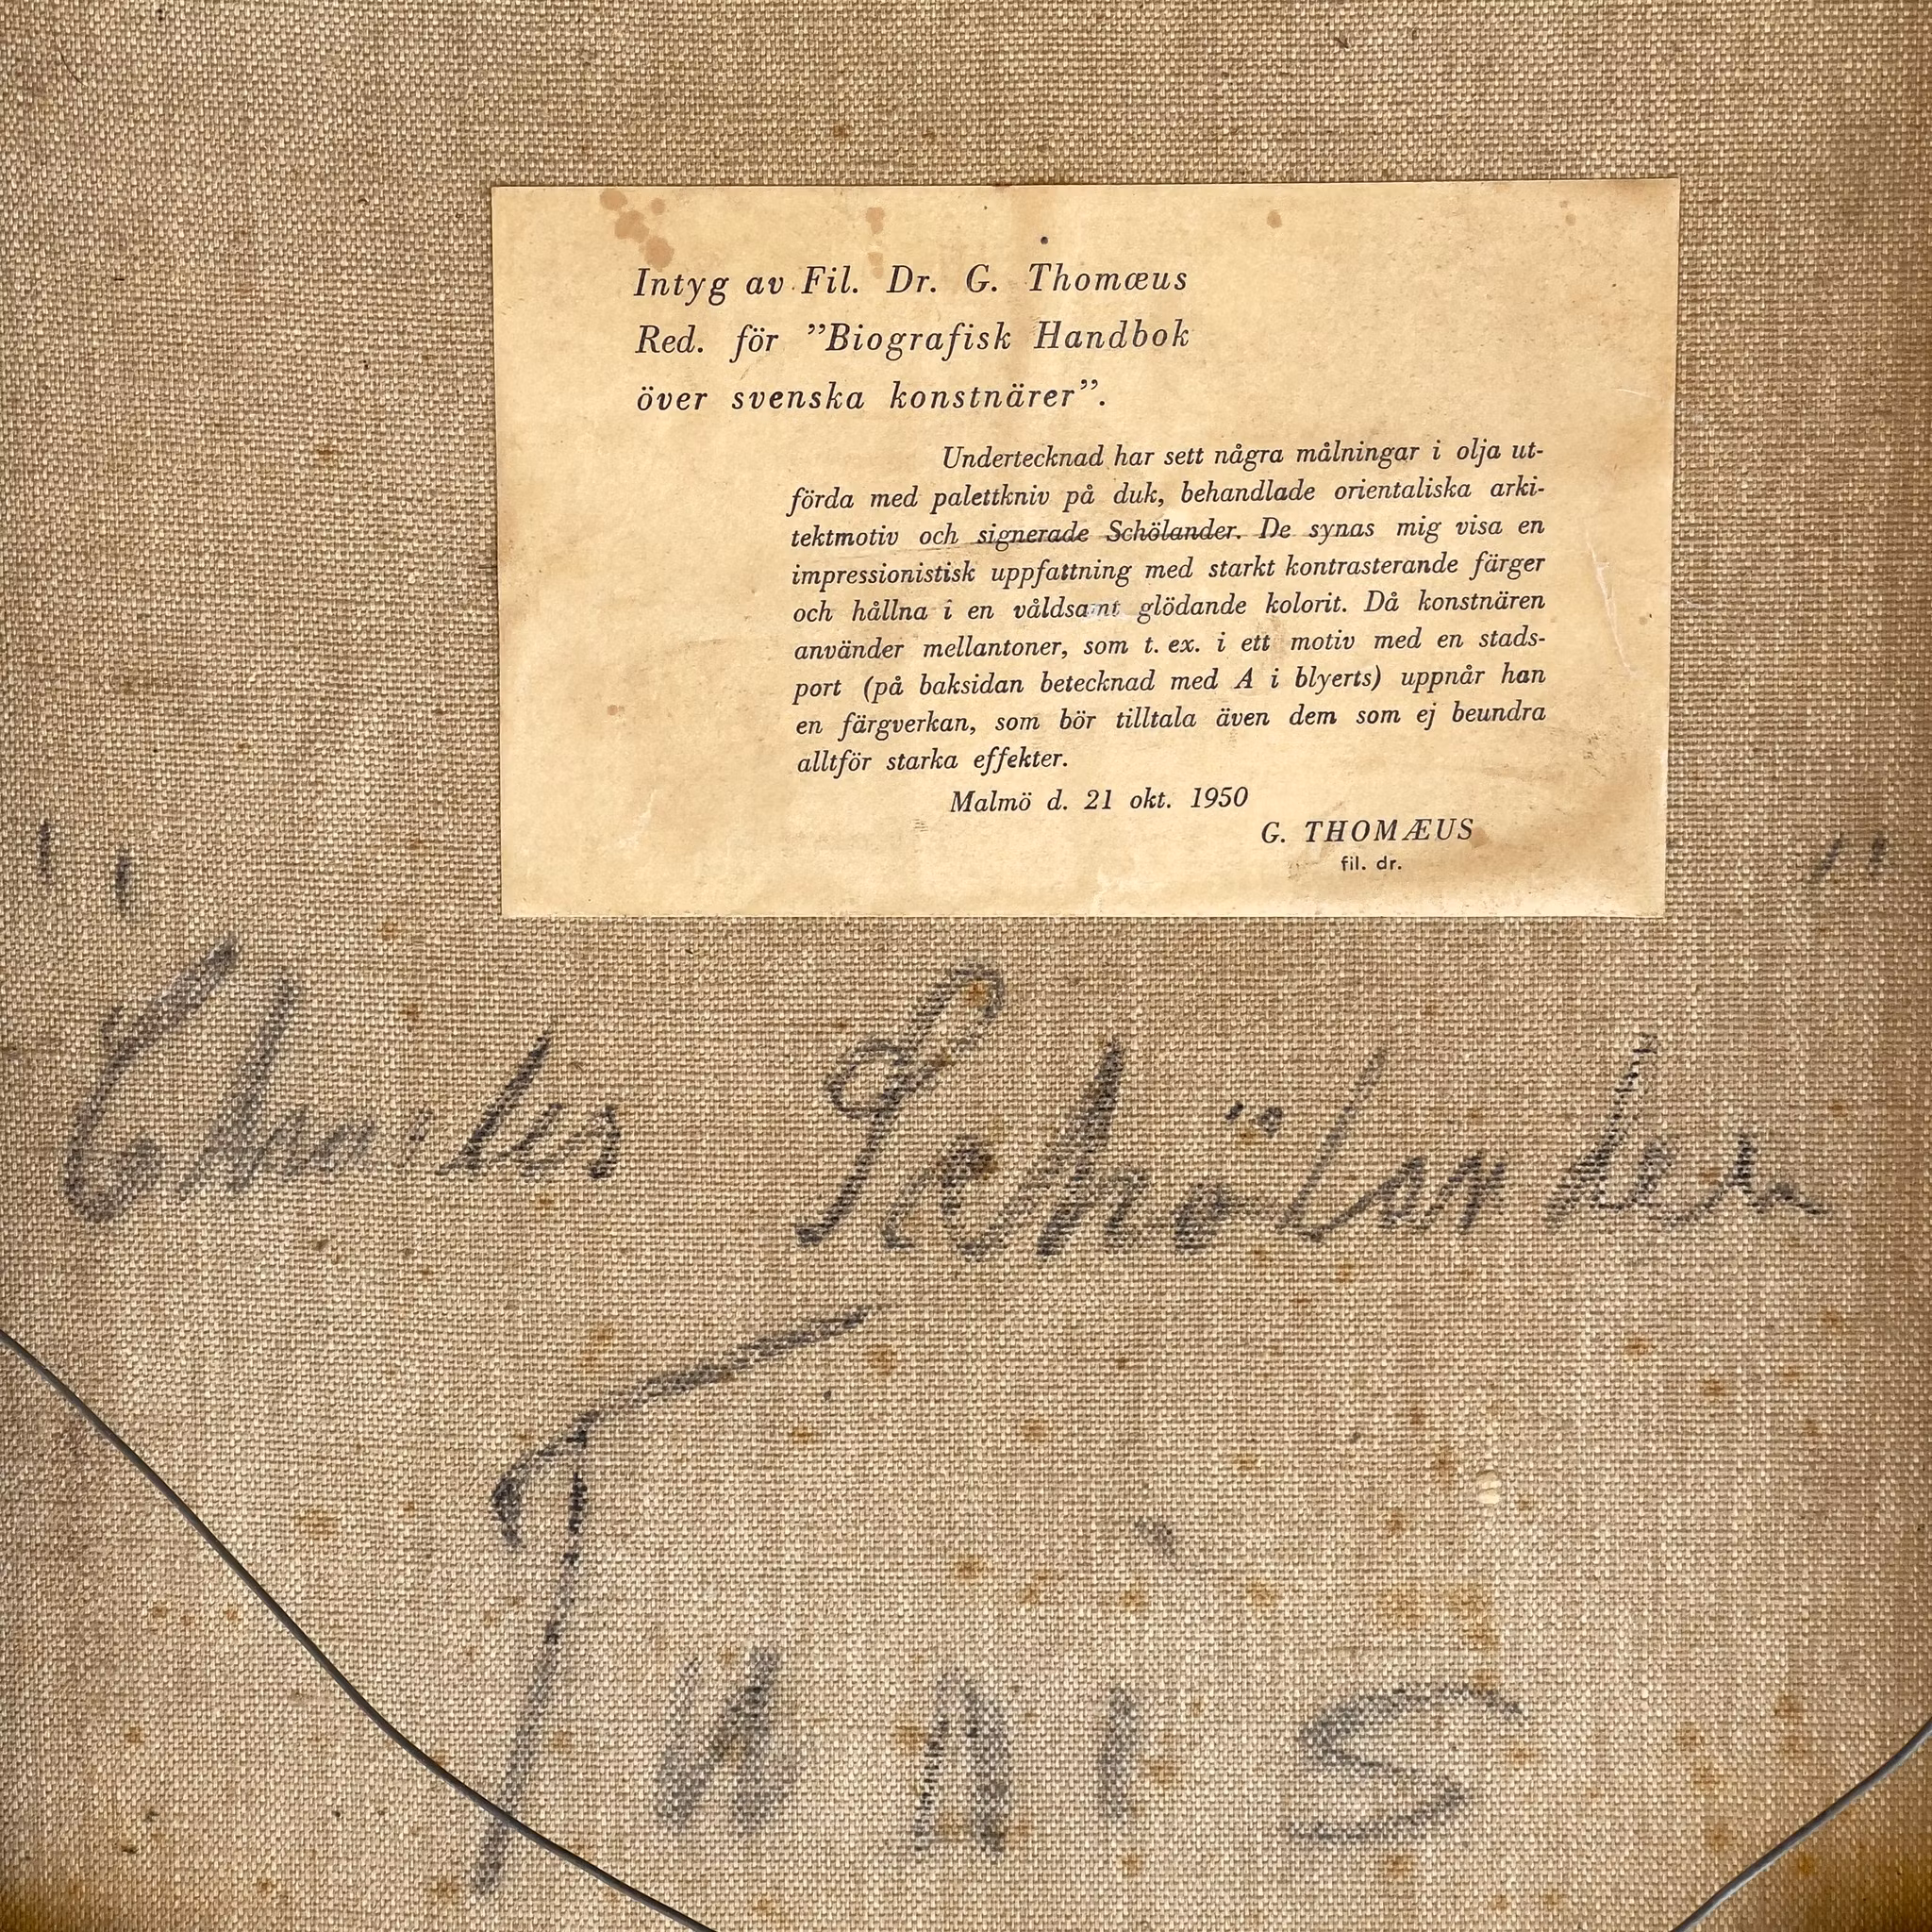 Intyg av Fil. Dr. G. Thomæus
Red. för ”Biografisk Handbok
över svenska konstnärer”.
Undertecknad har sett några målningar i olja ut-
förda med palettkniv på duk, behandlade orientaliska arki-
tektmotiv och signerade Schölander. De synas mig visa en
impressionistisk uppfattning med starkt kontrasterande färger
och hållna i en våldsamt glödande kolorit. Då konstnären
använder mellantoner, som t. ex. i ett motiv med en stads-
port (på baksidan betecknad med A i blyerts) uppnår han
en färgverkan, som bör tilltala även dem som ej beundra
alltför starka effekter.
Malmö d. 21 okt. 1950
G. THOMÆUS
fil. dr.
"Charles Schölander"
Tunis